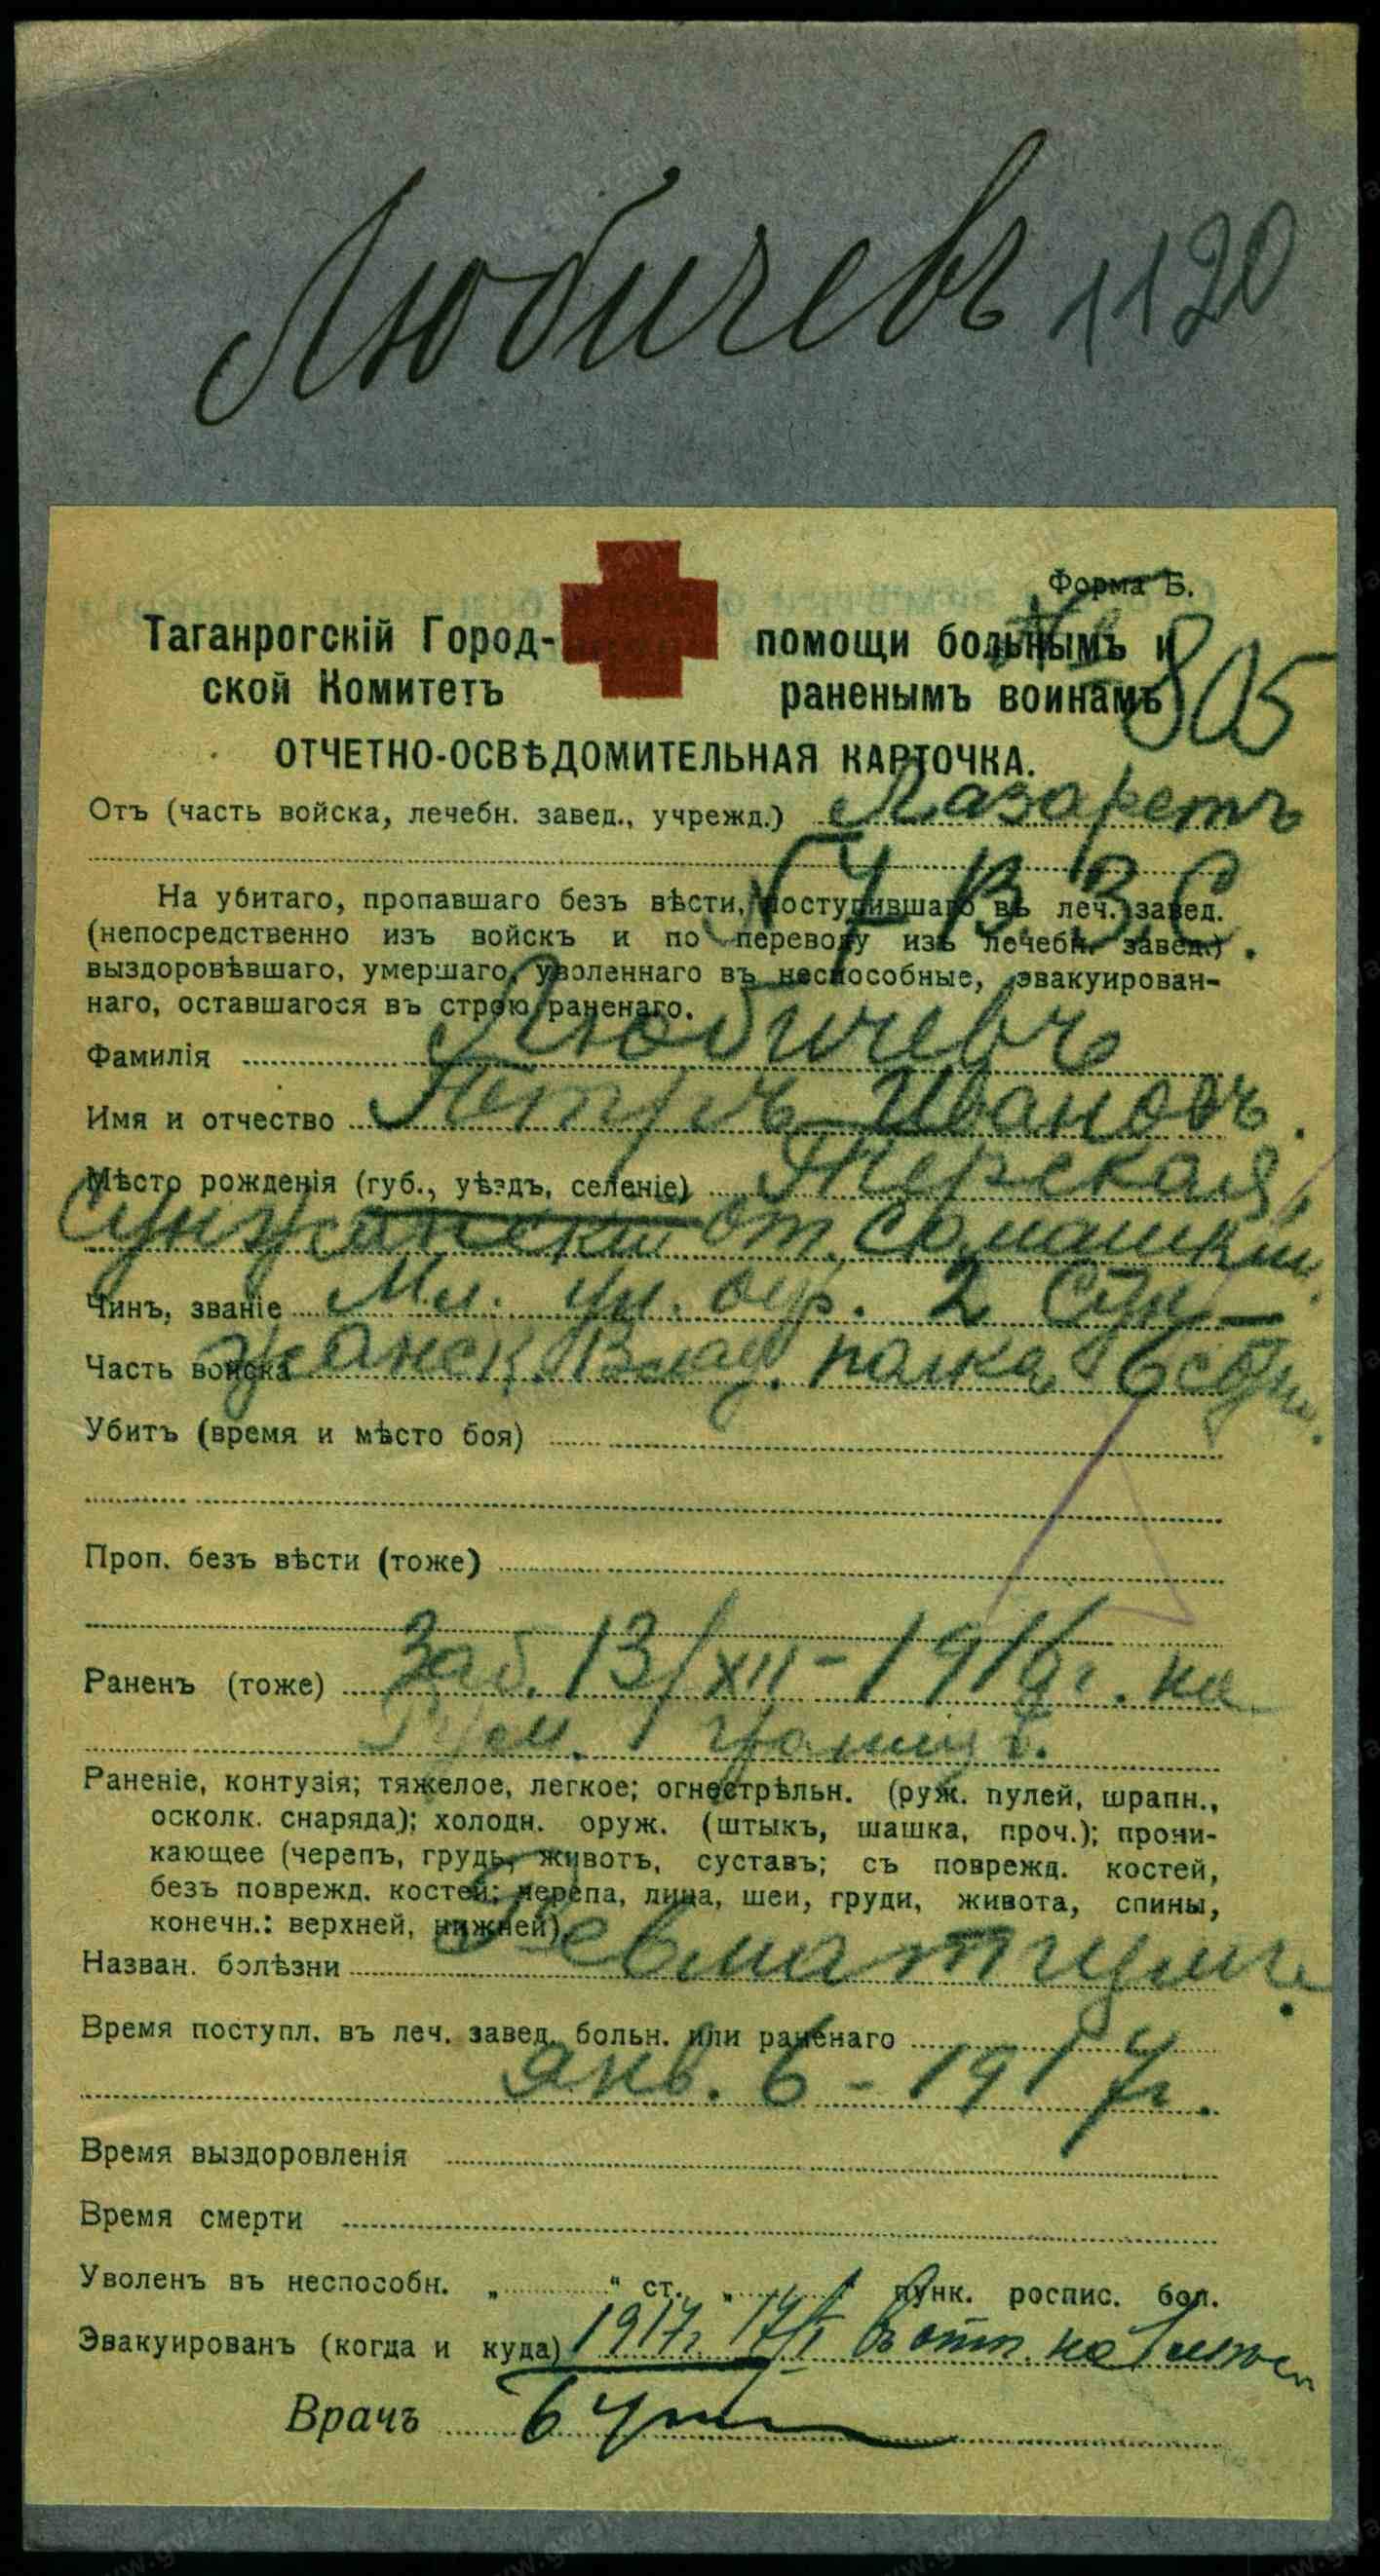 Любичевъ 1120
Форма Б.
Таганрогскій Город- помощи больнымъ и
ской Комитетъ раненымъ воинамъ
№ 805
ОТЧЕТНО-ОСВѢДОМИТЕЛЬНАЯ КАРТОЧКА.
Отъ (часть войска, лечебн. завед., учрежд.) Лазаретъ
В. З. С.
На убитаго, пропавшаго безъ вѣсти, поступившаго въ леч. завед.
(непосредственно изъ войскъ и по переводу изъ лечебн. завед.)
выздоровѣвшаго, умершаго, уволеннаго въ неспособные, эвакуирован-
наго, оставшагося въ строю раненаго.
Фамилія Любичевъ
Имя и отчество Петръ Ивановъ.
Мѣсто рожденія (губ., уѣздъ, селеніе) Терская,
Сунженскій от.
Чинъ, званіе Мл. ун. оф. 2 Сун-
Часть войска женск. Влад. полка 6 сотн.
Убитъ (время и мѣсто боя)
Проп. безъ вѣсти (тоже)
Раненъ (тоже) Заб. 13/XII-1916 г. на
Рум.
Раненіе, контузія; тяжелое, легкое; огнестрѣльн. (руж. пулей, шрапн.,
осколк. снаряда); холодн. оруж. (штыкъ, шашка, проч.); прони-
кающее (черепъ, грудь, животъ, суставъ; съ поврежд. костей,
безъ поврежд. костей; черепа, лица, шеи, груди, живота, спины,
конечн.: верхней, нижней)
Назван. болѣзни Ревматизмъ.
Время поступл. въ леч. завед. больн. или раненаго
Янв. 6 - 1917 г.
Время выздоровленія
Время смерти
Уволенъ въ неспособн. „ “ ст. „ “ пунк. роспис. бол.
Эвакуированъ (когда и куда) 1917 г. 17/I въ отп. на 1 мѣсяц
Врачъ